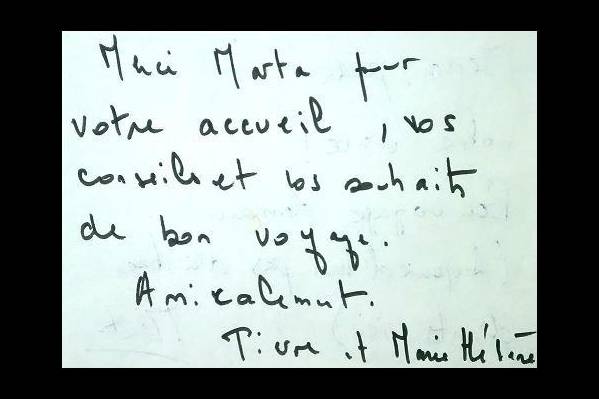 Merci Marta pour
votre accueil, vos
conseils et vos souhaits
de bon voyage.
Amicalement.
Pierre et Marie Hélène